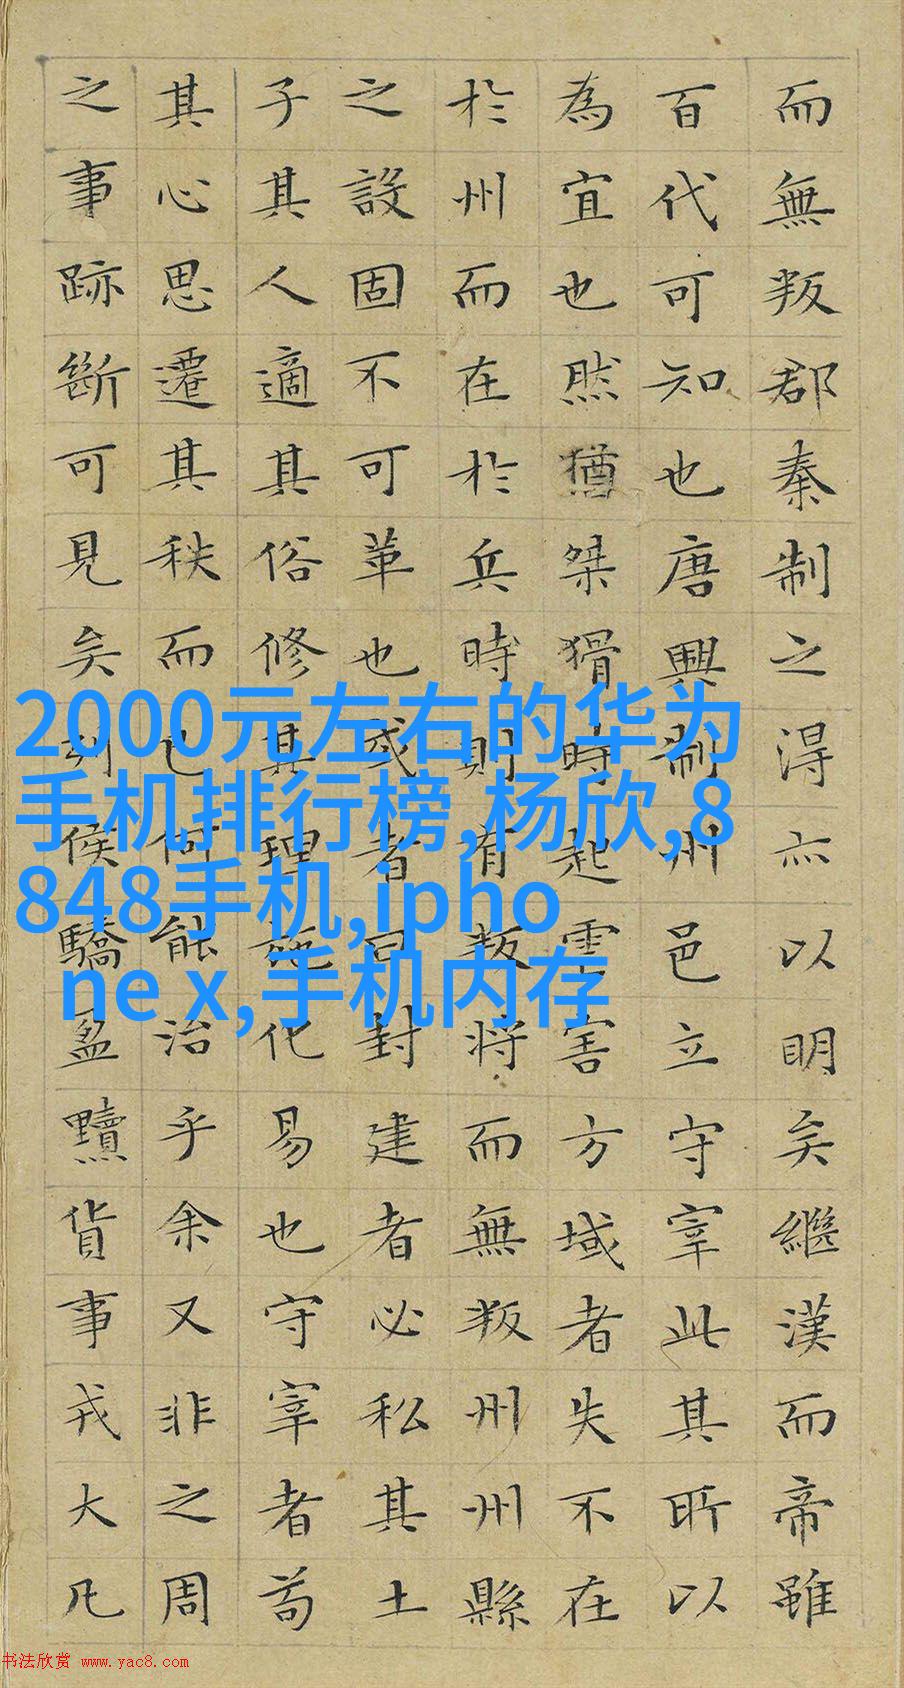 而無叛郡秦制之得亦以明矣繼漢而帝雖
百代可知也唐興制州邑立守宰此其所以
為宜也然猶桀猾時起虐害方域者失不在
於州而在於兵時則有叛將而無叛州州縣
之設固不可革也或者曰封建者必私其土
子其人適其俗修其理施化易也守宰者苟
其心思遷其秩而已何能治乎余又非之周
之事跡斷可見矣列侯驕盈黷貨事戎大凡
2000元左右的华为
手机排行榜,杨欣,8
848手机,ipho
ne x,手机内存
书法欣赏 www.yac8.com